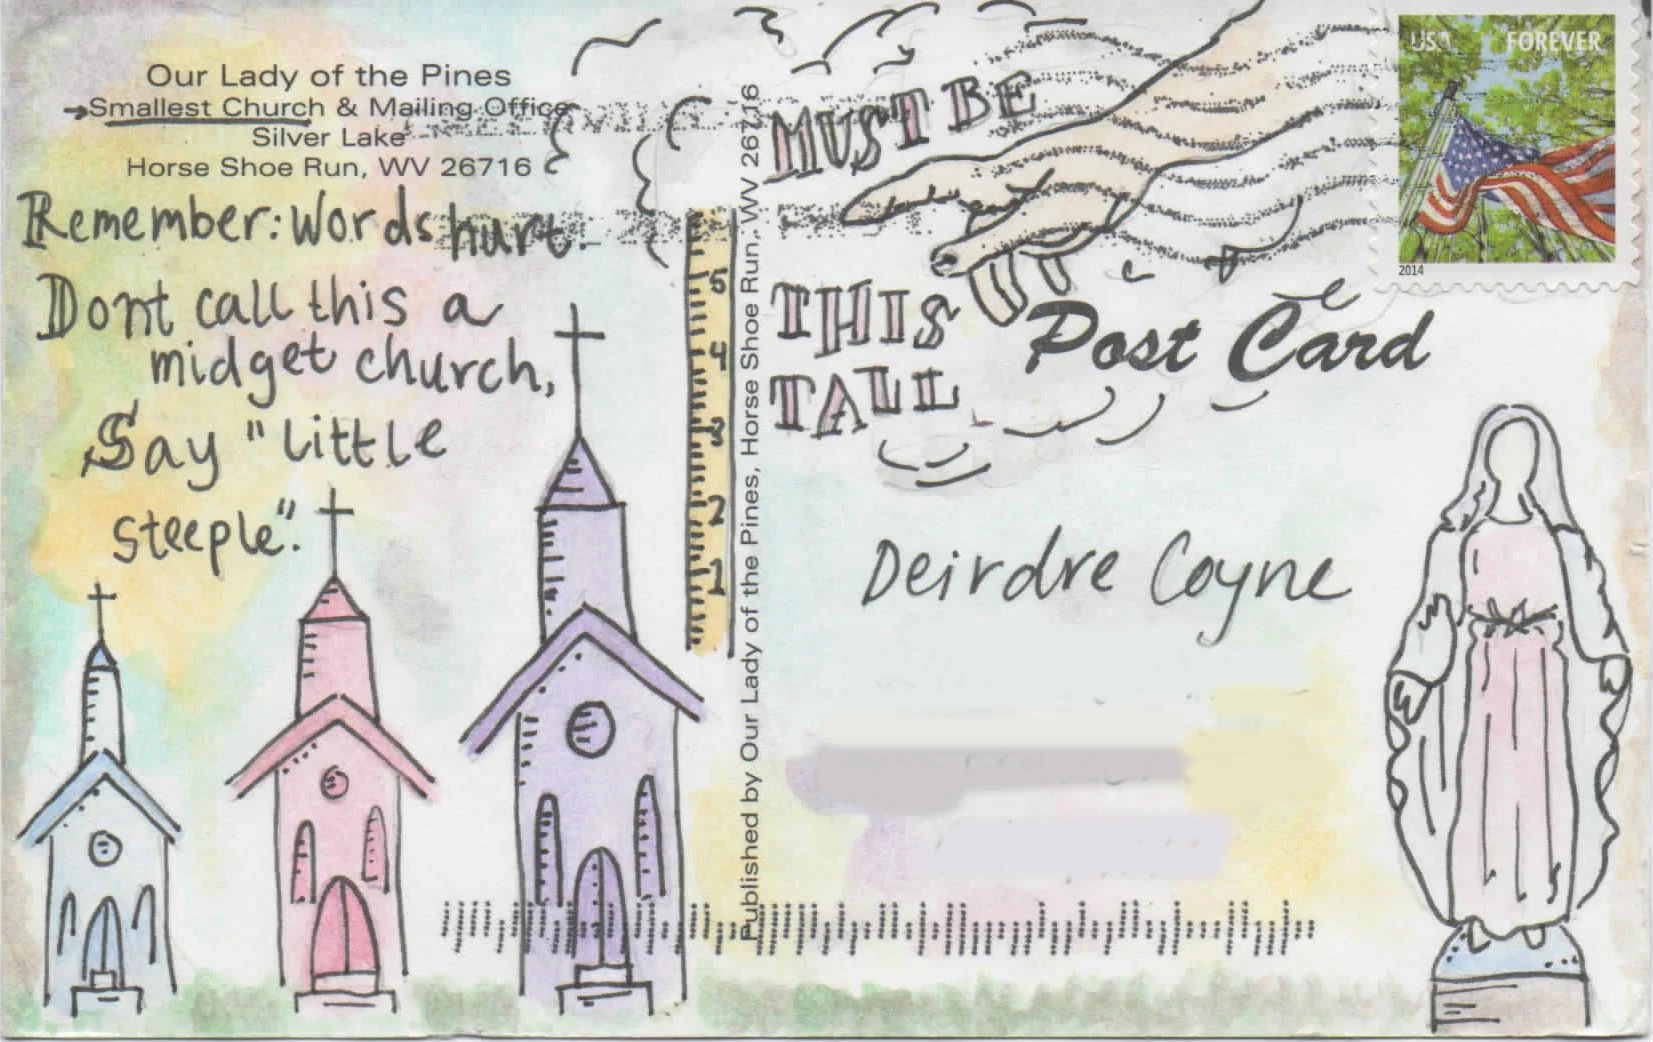 Our Lady of the Pines
Smallest Church & Mailing Office
Silver Lake
Horse Shoe Run, WV 26716
Remember: Words hurt.
Dont call this a
midget church,
Say "little
steeple".
5
4
3
2
1
Published by Our Lady of the Pines, Horse Shoe Run, WV 26716
MUST BE
THIS
TALL
USA FOREVER
2014
Post Card
Deirdre Coyne